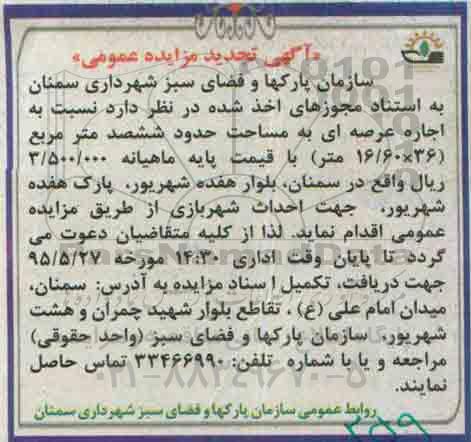 «آگهی تجدید مزایده عمومی»
سازمان پارکها و فضای سبز شهرداری سمنان
به استناد مجوزهای اخذ شده در نظر دارد نسبت به
اجاره عرصه ای به مساحت حدود ششصد متر مربع
(۳۶×۱۶/۶۰ متر) با قیمت پایه ماهیانه ۳/۵۰۰/۰۰۰
ریال واقع در سمنان، بلوار هفده شهریور، پارک هفده
شهریور، جهت احداث شهربازی از طریق مزایده
عمومی اقدام نماید. لذا از کلیه متقاضیان دعوت می
گردد تا پایان وقت اداری ۱۴:۳۰ مورخه ۹۵/۵/۲۷
جهت دریافت، تکمیل اسناد مزایده به آدرس: سمنان،
میدان امام علی (ع) ، تقاطع بلوار شهید چمران و هشت
شهریور، سازمان پارکها و فضای سبز (واحد حقوقی)
مراجعه و یا با شماره تلفن: ۳۳۴۶۶۹۹۰ تماس حاصل
نمایند.
۰۲۱-۸۸۳۴۹۶۷۰-۵
روابط عمومی سازمان پارکها و فضای سبز شهرداری سمنان